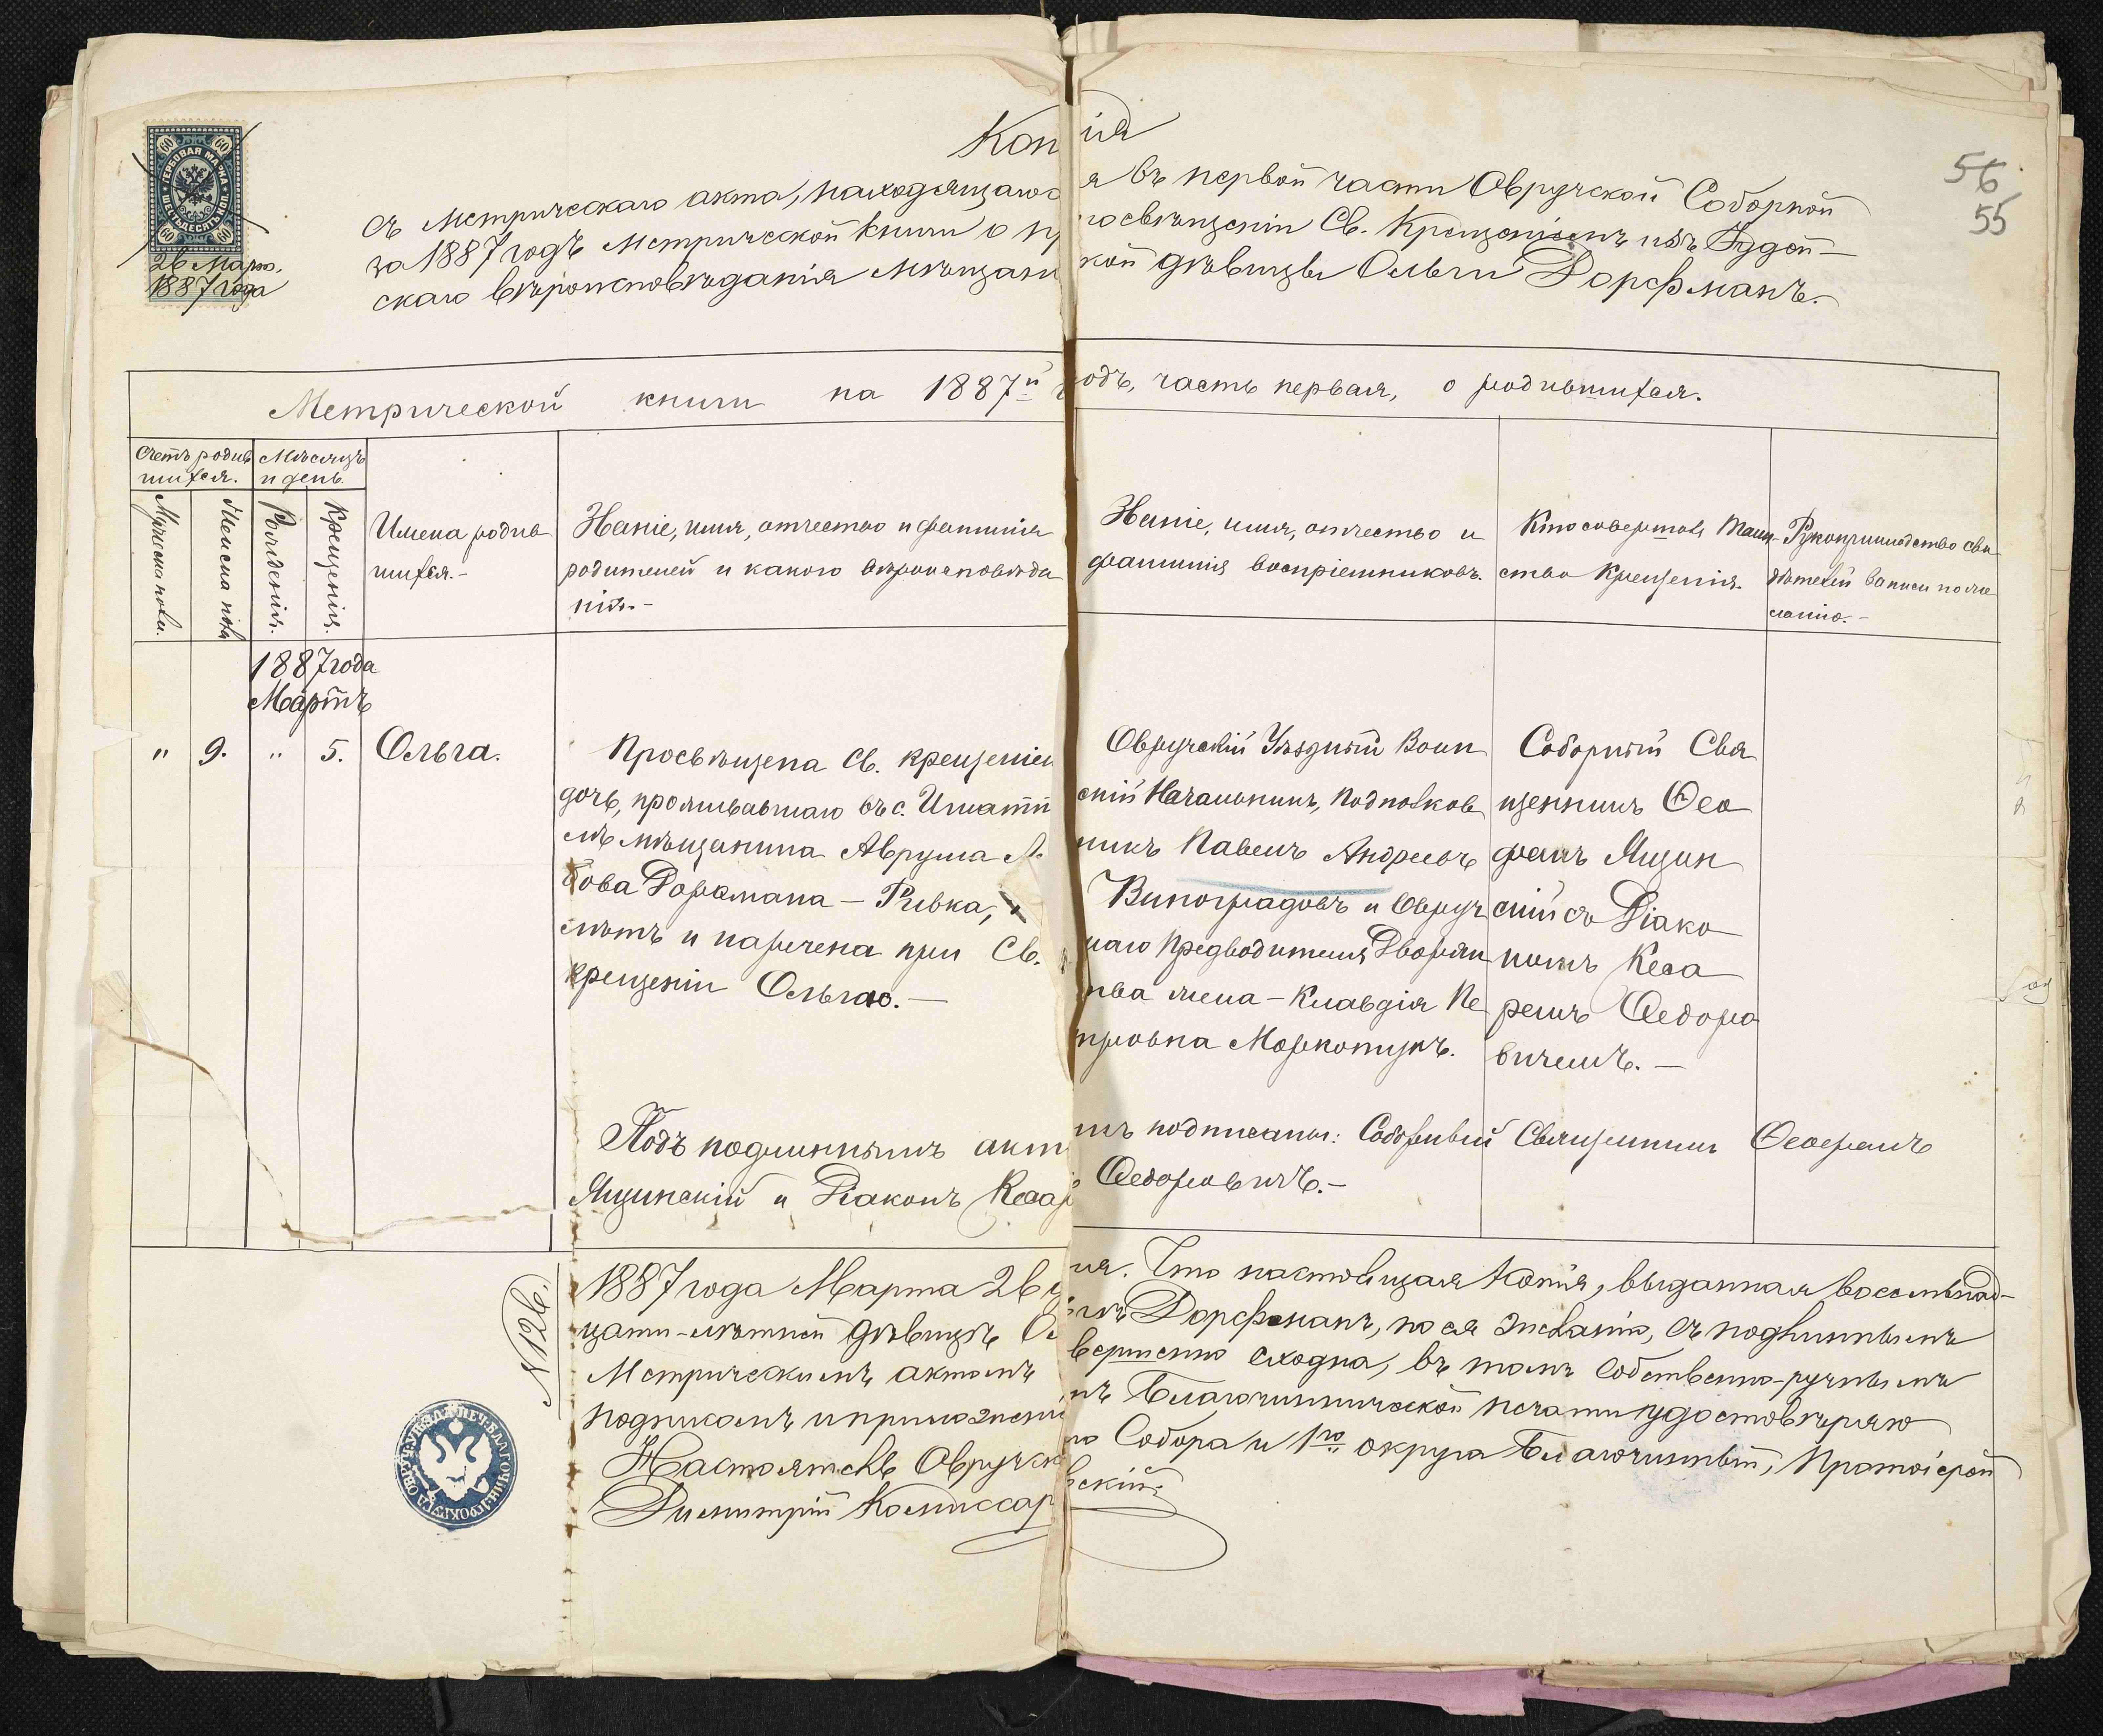 Копія
56
55
ГЕРБОВАЯ МАРКА
ШЕСТЬДЕСЯТЪ КОП.
60 60
60 60
26 Марта.
1887 года
съ Метрическаго акта, находящагося въ первой части Овручской Соборной
за 1887 годъ Метрической книги о просвѣщеніи Св. Крещеніемъ изъ Іудей-
скаго вѣроисповѣданія мѣщанской дѣвицы Ольги Дорфманъ.
Метрической книги на 1887й годъ, часть первая, о родившихся.
Счетъ родив
шихся.
Мѣсяцъ
и день.
Мужеска пола.
Женска пола
Рожденія.
Крещенія.
Имена родив
шихся.-
Званіе, имя, отчество и фамилія
родителей и какого вѣроисповѣда
нія.-
Званіе, имя, отчество и
фамилія воспріемниковъ.
Кто совершалъ Таин-
ство Крещенія.
Рукоприкладство сви
дѣтелей записи по же
ланію.-
1887 года
Мартъ
" 9. " 5. Ольга.
Просвѣщена Св. Крещеніем
дочь, проживавшаго въ с. Игнатп
лѣ мѣщанина Аврума
Дорфмана - Ривка,
лѣтъ и наречена при Св.
крещеніи Ольгою.-
Овручскій Уѣздный Воин
скій Начальникъ, Подполков
никъ Павелъ Андреевъ
Виноградовъ и Овруч
наго Предводителя Дворян
ства жена - Клавдія Пе
тровна
Соборный Свя
щенникъ Ѳео
фанъ Ящин
скій съ Діако
номъ Кеса
ремъ Ѳедоро
вичемъ.-
Подъ подлиннымъ актомъ подписаны: Соборный Священникъ Ѳеофанъ
Ящинскій и Діаконъ Кесарь Ѳедоровичъ.-
№ 126.
1887 года Марта 26 дня. Что настоящая Копія, выданная восемьнад-
цати-лѣтней дѣвицѣ Ольгѣ Дорфманъ, по ея желанію, съ подлиннымъ
Метрическимъ актомъ вершенно сходна, въ томъ собственно-ручнымъ
подписомъ и приложеніемъ Благочиннической печати удостовѣряю
Настоятель Овручскаго Собора и 1го округа Благочинный, Протоіерей
Димитрій Комиссаревскій.